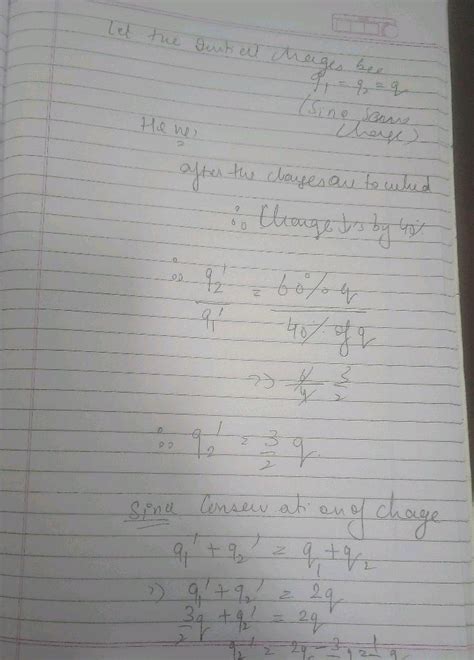 Let the Initial charges bee
q₁ = q₂ = q
(Sine same
charge)
Hene,
after the charges are touched
∴ Charge ↓'s by 40%
∴ q₂' / q₁' = 60% q / 40% of q
=> 6/4 3/2
∴ q₂' = 3/2 q
Sine Conservation of charge
q₁' + q₂' = q₁ + q₂
=> q₁' + q₂' = 2q
3/2 q + q₂' = 2q
q₂' = 2q - 3/2 q = 1 q